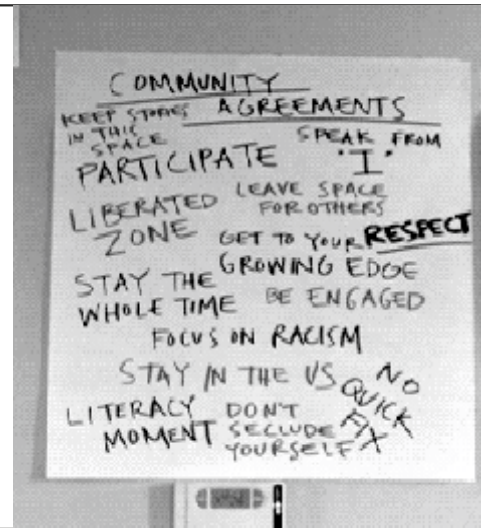 COMMUNITY
AGREEMENTS
KEEP STORIES
IN THIS
SPACE
SPEAK FROM
"I"
PARTICIPATE
LEAVE SPACE
FOR OTHERS
LIBERATED
ZONE
RESPECT
GET TO YOUR
GROWING EDGE
STAY THE
WHOLE TIME
BE ENGAGED
FOCUS ON RACISM
STAY IN THE US
NO
QUICK
FIX
LITERACY
MOMENT
DON'T
SECLUDE
YOURSELF